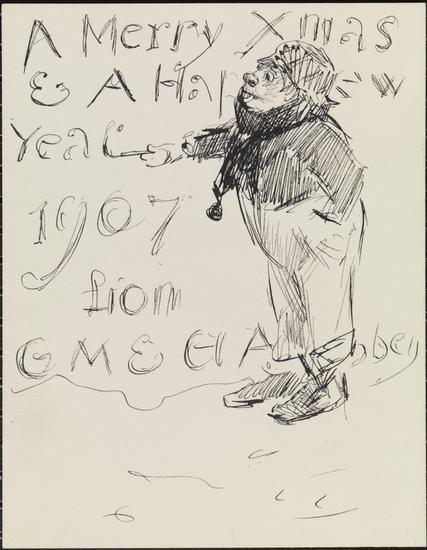 A Merry Xmas
& A Hap w
Year
1907
from
G M & E A Abbey